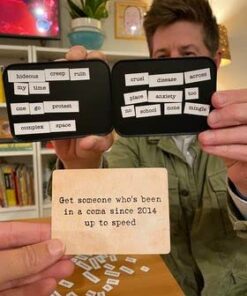 hideous creep ruin
my time
one go protest
complex space
cruel disease across
place anxiety too
no school come mingle
Get someone who's been
in a coma since 2014
up to speed